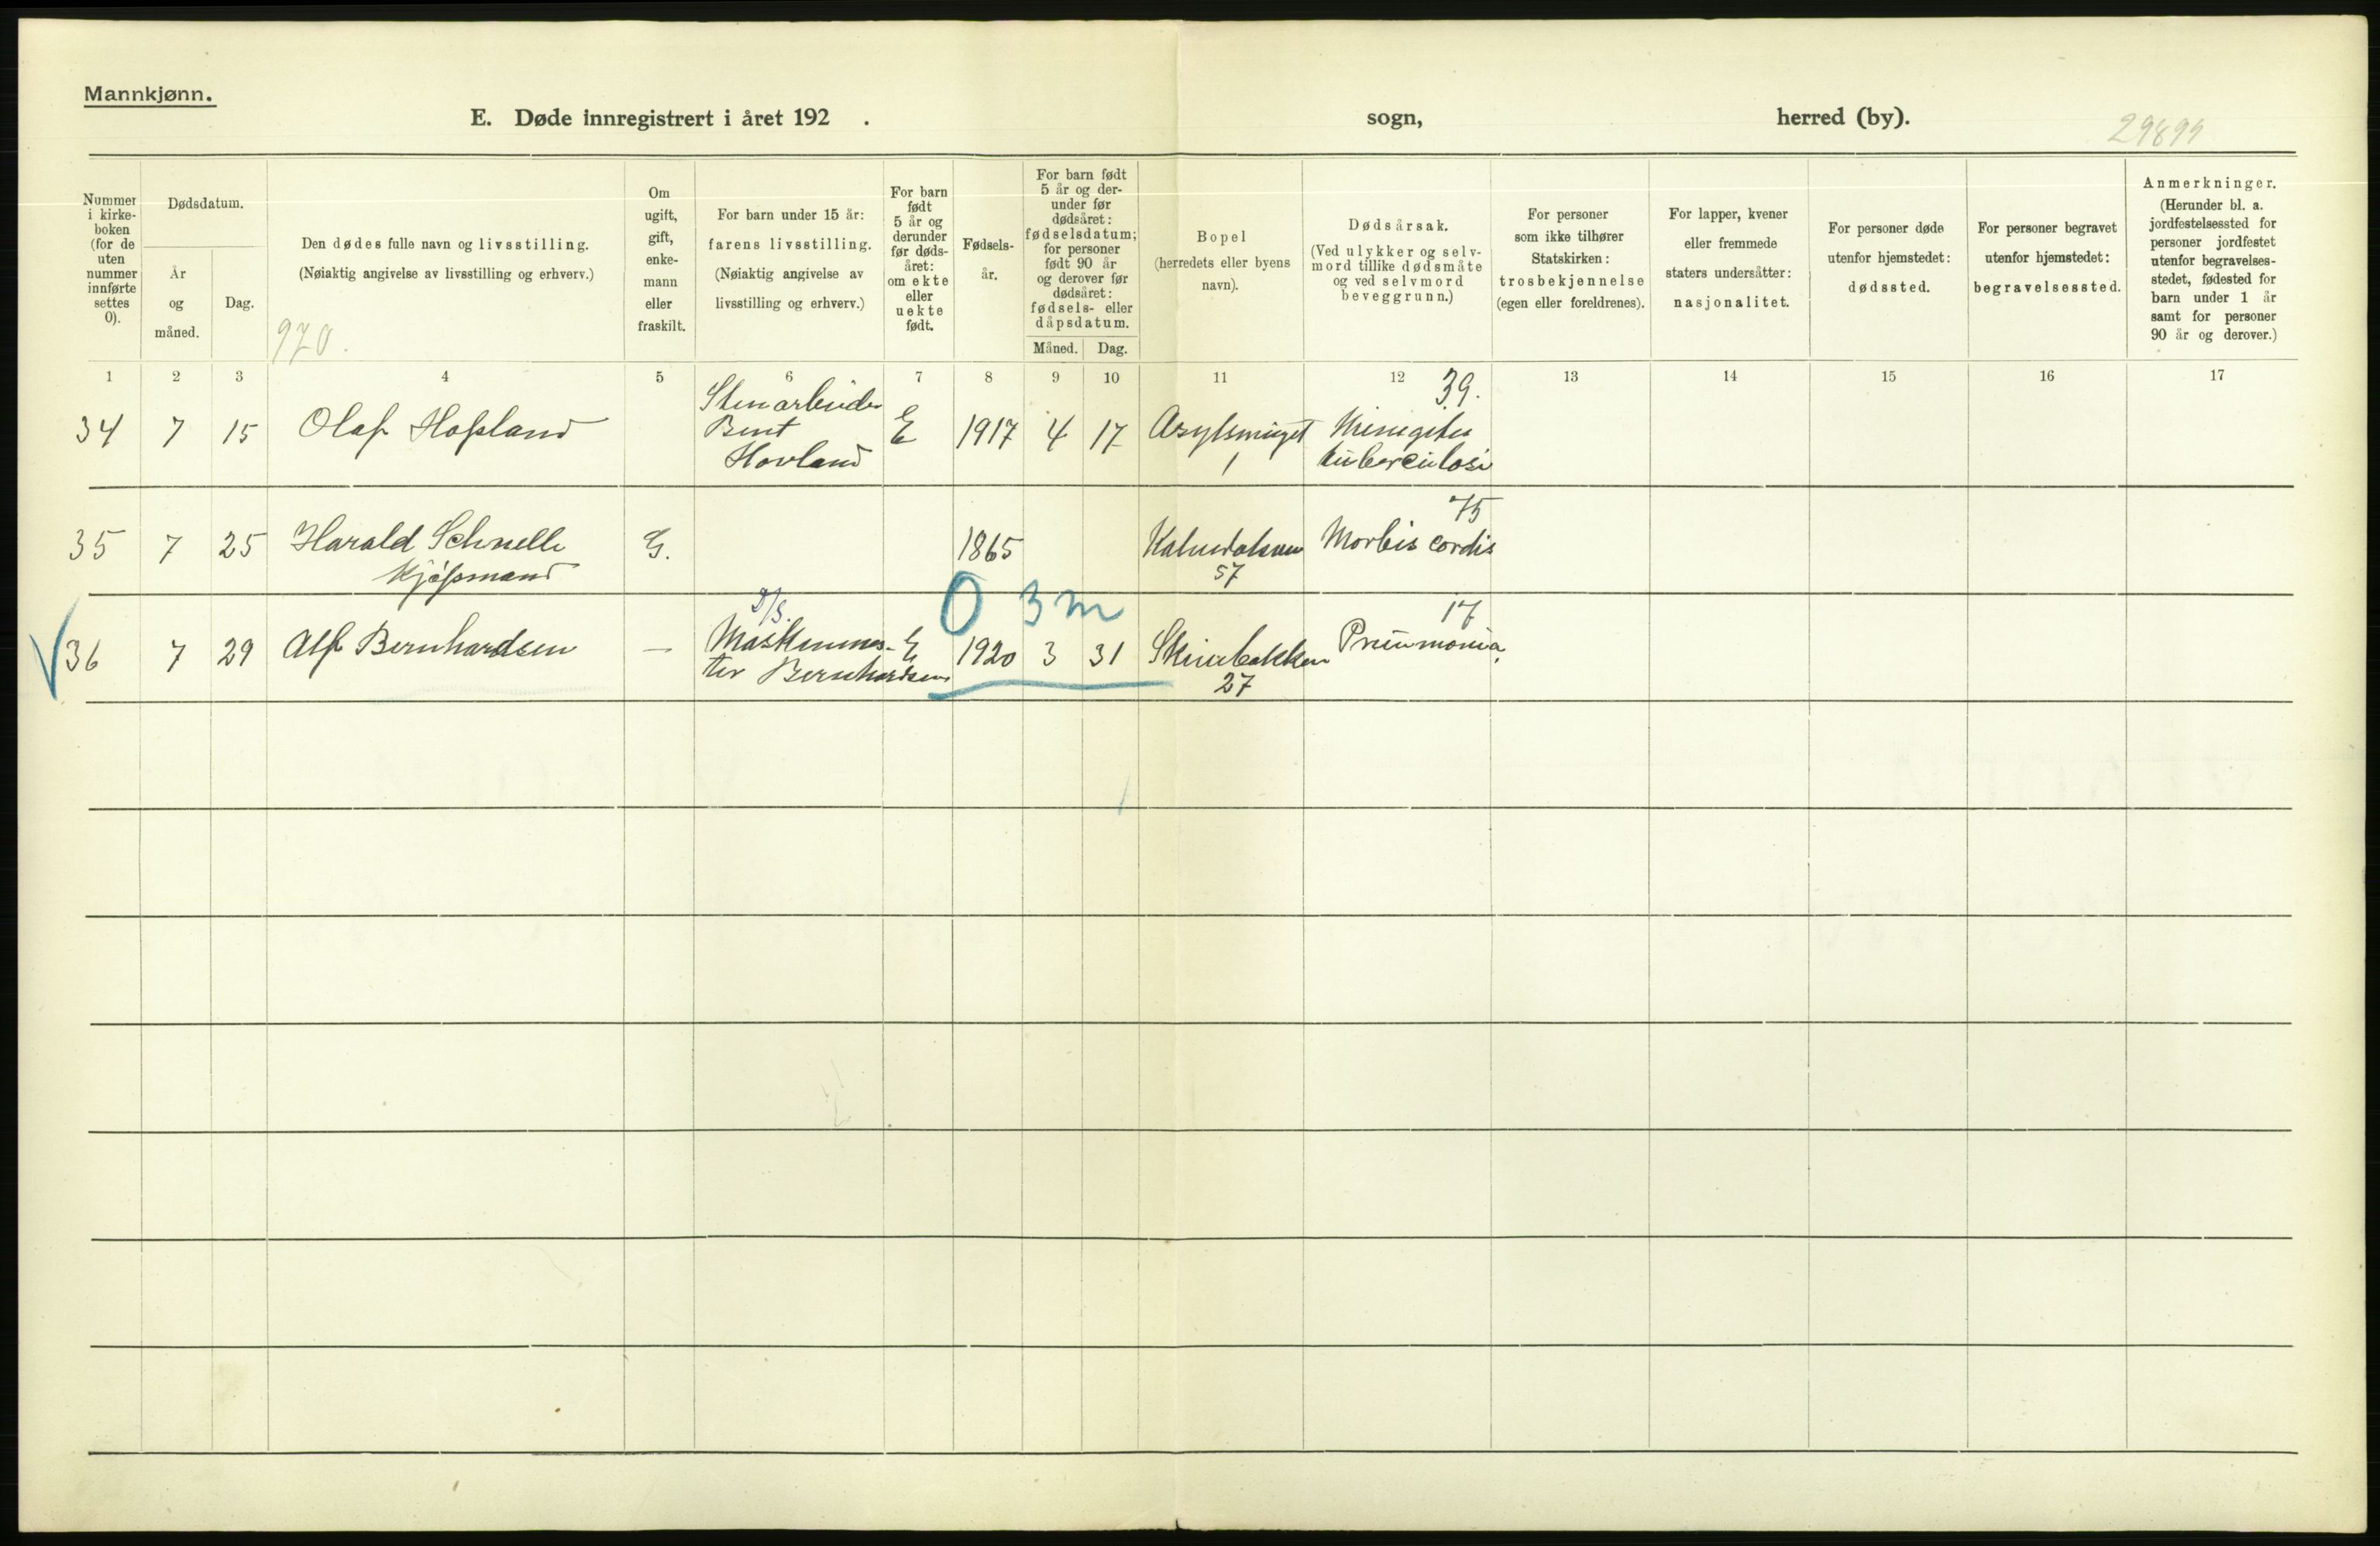 Mannkjønn.
E. Døde innregistrert i året 192 . sogn, herred (by).
29899
Nummer i kirke- boken (for de uten nummer innførte settes 0).
Dødsdatum.
År og måned.
Dag.
Den dødes fulle navn og livsstilling.
(Nøiaktig angivelse av livsstilling og erhverv.)
970.
Om ugift, gift, enke- mann eller fraskilt.
For barn under 15 år:
farens livsstilling.
(Nøiaktig angivelse av
livsstilling og erhverv.)
For barn født 5 år og derunder før døds- året: om ekte eller uekte født.
Fødsels- år.
For barn født 5 år og der- under før dødsåret: fødselsdatum; for personer født 90 år og derover før dødsåret: fødsels- eller dåpsdatum.
Måned. Dag.
Bopel
(herredets eller byens
navn).
Dødsårsak.
(Ved ulykker og selv-
mord tillike dødsmåte
og ved selvmord
beveggrunn.)
For personer
som ikke tilhører
Statskirken:
trosbekjennelse
(egen eller foreldrenes).
For lapper, kvener
eller fremmede
staters undersåtter:
nasjonalitet.
For personer døde
utenfor hjemstedet:
dødssted.
For personer begravet
utenfor hjemstedet:
begravelsessted.
Anmerkninger.
(Herunder bl. a.
jordfestelsessted for
personer jordfestet
utenfor begravelses-
stedet, fødested for
barn under 1 år
samt for personer
90 år og derover.)
1 2 3 4 5 6 7 8 9 10 11 12 13 14 15 16 17
39.
34 7 15 Olaf Hofland Stenarbeider Bent Hovland E 1917 4 17 Asylsmuget 1 tuberculosi
75
35 7 25 Harald Schnelle Kjøfmand G. 1865 57 Morbis cordis
0 3 m
17
36 7 29 Alf Bernhardsen — D/S. Maskinmes- ter Bernhardsen E 1920 3 31 Skivebakken 27 Pneumonia